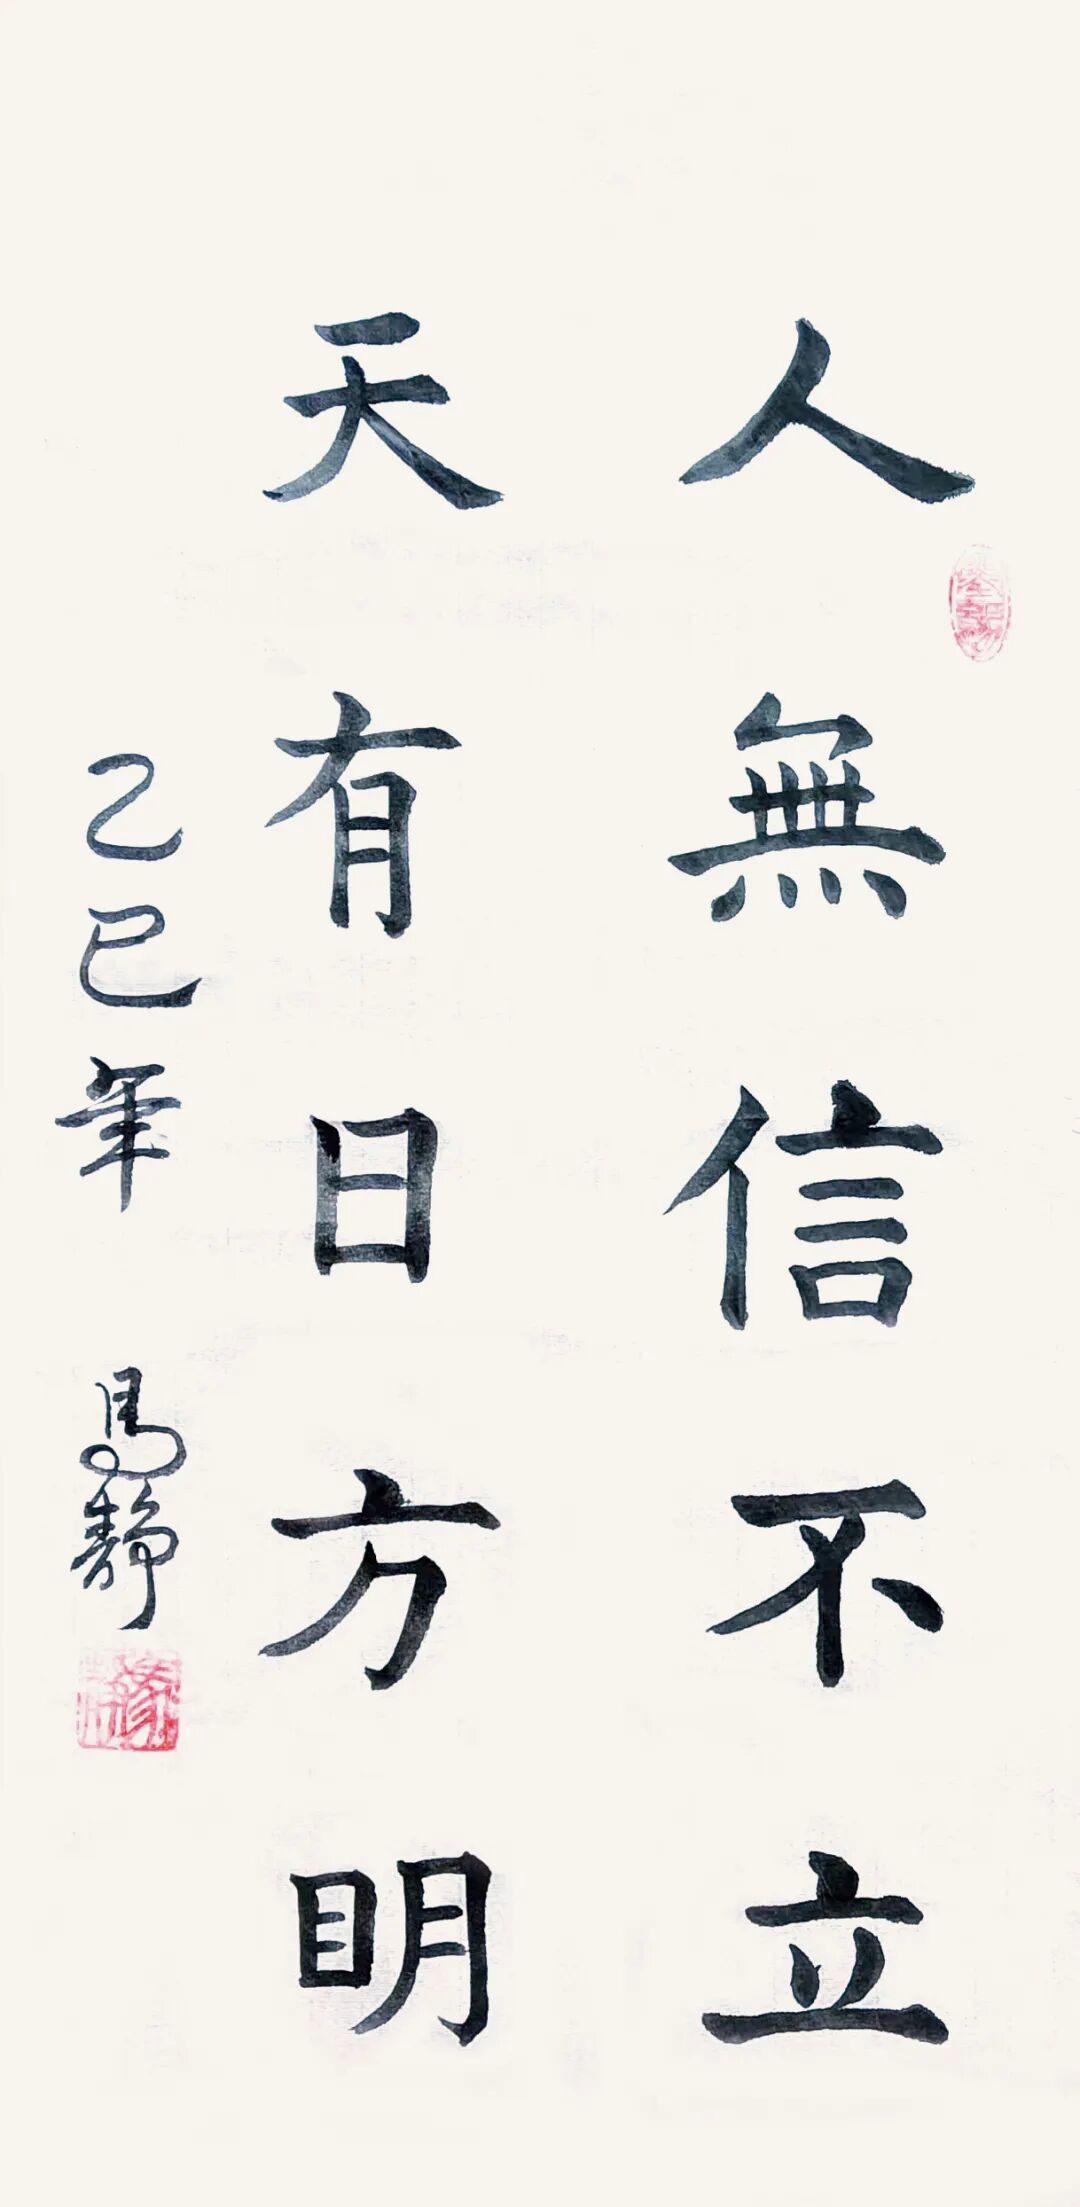 人無信不立
天有日方明
乙巳年 馬靜